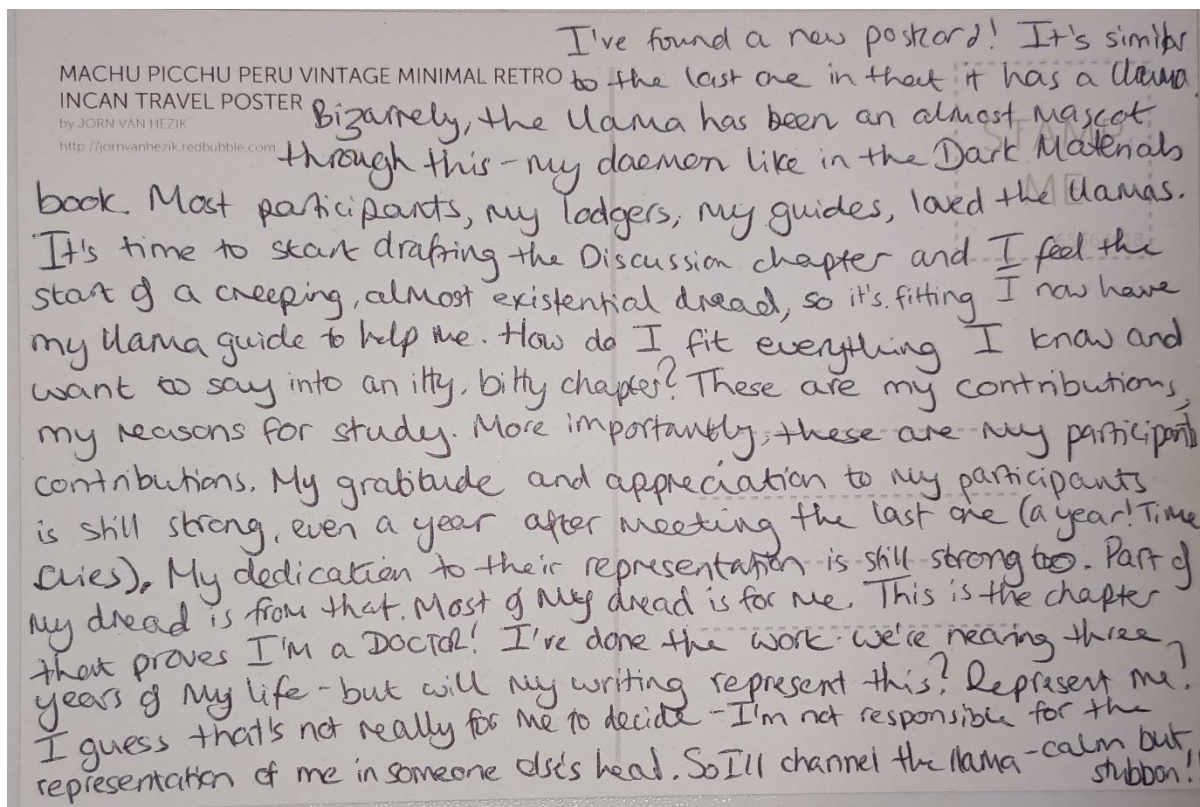 I've found a new postcard! It's similar
MACHU PICCHU PERU VINTAGE MINIMAL RETRO
to the last one in that it has a llama.
INCAN TRAVEL POSTER
by JORN VAN HEZIK
http://jornvanhezik.redbubble.com
Bizarrely, the llama has been an almost mascot
through this - my daemon like in the Dark Materials
book. Most participants, my lodgers, my guides, loved the llamas.
It's time to start drafting the Discussion chapter and I feel the
start of a creeping, almost existential dread, so it's fitting I now have
my llama guide to help me. How do I fit everything I know and
want to say into an itty, bitty chapter? These are my contributions,
my reasons for study. More importantly, these are my participants'
contributions. My gratitude and appreciation to my participants
is still strong, even a year after meeting the last one (a year! Time
flies). My dedication to their representation is still strong too. Part of
my dread is from that. Most of my dread is for me. This is the chapter
that proves I'M a DOCTOR! I've done the work - we're nearing three
years of my life - but will my writing represent this? Represent me?
I guess that's not really for me to decide - I'm not responsible for the
representation of me in someone else's head. So I'll channel the llama - calm but
stubbon!!